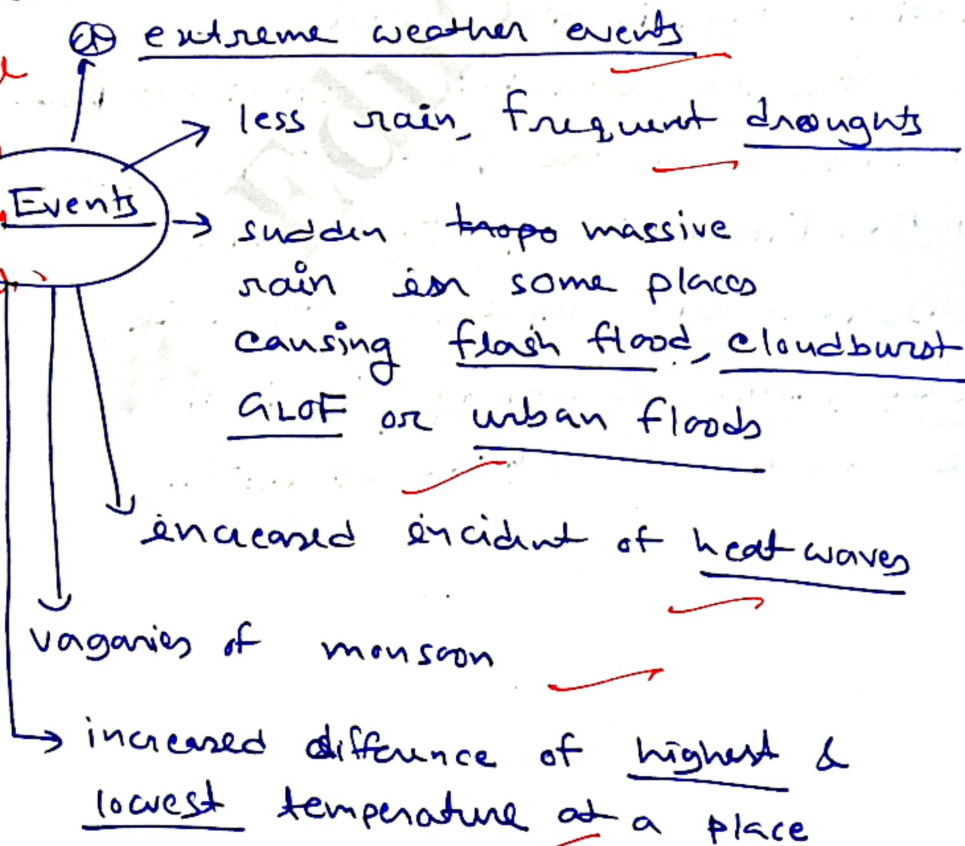 extreme weather events
less rain, frequent droughts
Events
sudden massive
rain in some places
causing flash flood, cloudburst
GLOF or urban floods
increased incident of heat waves
vagaries of monsoon
increased difference of highest &
lowest temperature at a place